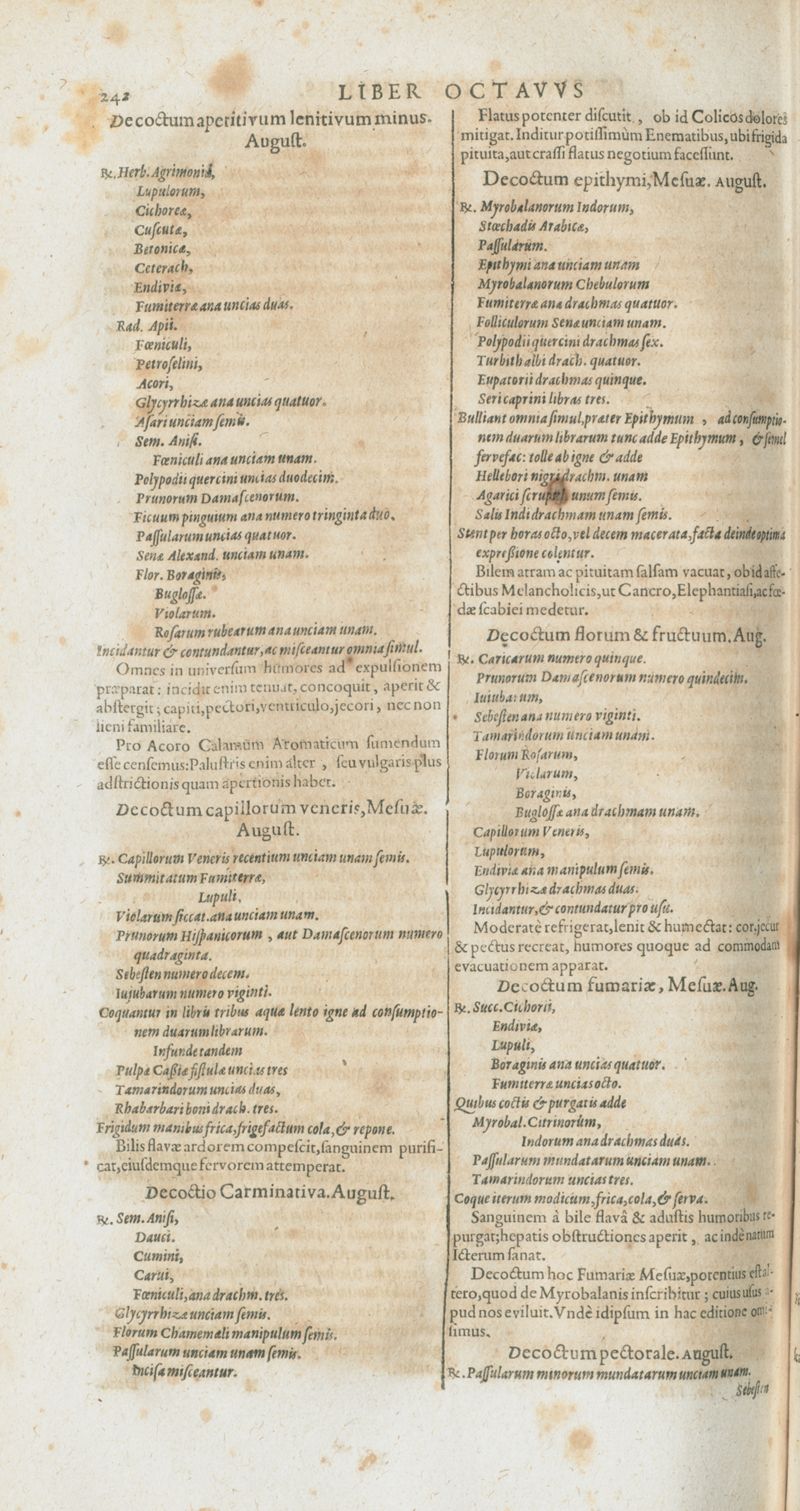 242
LIBER OCTAVVS
Decoctum aperitivum lenitivum minus.
August.
℞. Herb. Agrimoniæ,
Lupulorum,
Cichoreæ,
Cuſcutæ,
Betonicæ,
Ceterach,
Endiviæ,
Fumiterræ ana uncias duas.
Rad. Apii.
Fœniculi,
Petroſelini,
Acori,
Glycyrrhizæ ana uncias quatuor.
Aſari unciam ſemis.
Sem. Aniſi.
Fœniculi ana unciam unam.
Polypodii quercini uncias duodecim.
Prunorum Damaſcenorum.
Ficuum pinguium ana numero tringinta duo.
Paſſularum uncias quatuor.
Senæ Alexand. unciam unam.
Flor. Boraginis,
Bugloſſæ.
Violarum.
Roſarum rubearum ana unciam unam.
Incidantur & contundantur, ac miſceantur omnia ſimul.
Omnes in univerſum humores ad expulſionem
præparat: incidit enim tenuat, concoquit, aperit &
abſtergit; capiti, pectori, ventriculo, jecori, nec non
lieni familiare.
Pro Acoro Calamum Aromaticum ſumendum
eſſe cenſemus: Paluſtris enim alter, ſeu vulgaris plus
adſtrictionis quam apertionis habet.
Decoctum capillorum veneris, Meſuæ.
Auguſt.
℞. Capillorum Veneris recentium unciam unam ſemis.
Summitatum Fumiterræ,
Lupuli,
Violarum ſiccat. ana unciam unam.
Prunorum Hiſpanicorum, aut Damaſcenorum numero
quadraginta.
Sebeſten numero decem.
Iujubarum numero viginti.
Coquantur in libris tribus aquæ lento igne ad conſumptio-
nem duarum librarum.
Infunde tandem
Pulpæ Caßiæ fiſtulæ uncias tres
Tamarindorum uncias duas,
Rhabarbari boni drach. tres.
Frigidum manibus frica, frigefactum cola, & repone.
Bilis flavæ ardorem compeſcit, ſanguinem purifi-
cat, eiuſdemque fervorem attemperat.
Decoctio Carminativa. Auguſt.
℞. Sem. Aniſi,
Dauci.
Cumini,
Carui,
Fœniculi, ana drachm. tres.
Glycyrrhizæ unciam ſemis.
Florum Chamemali manipulum ſemis.
Paſſularum unciam unam ſemis.
Inciſa miſceantur.
Flatus potenter diſcutit, ob id Colicos dolores
mitigat. Inditur potiſſimùm Enematibus, ubi frigida
pituita, aut craſſi flatus negotium faceſſunt.
Decoctum epithymi, Meſuæ. Auguſt.
℞. Myrobalanorum Indorum,
Stœchadis Arabicæ,
Paſſularum.
Epithymi ana unciam unam
Myrobalanorum Chebulorum
Fumiterræ ana drachmas quatuor.
Folliculorum Senæ unciam unam.
Polypodii quercini drachmas ſex.
Turbith albi drach. quatuor.
Eupatorii drachmas quinque.
Seri caprini libras tres.
Bulliant omnia ſimul, præter Epithymum, ad conſumptio-
nem duarum librarum tunc adde Epithymum, & ſimul
fervefac: tolle ab igne & adde
Hellebori nigri drachm. unam
Agarici unum ſemis.
Salis Indi drachmam unam ſemis.
Stent per horas octo, vel decem macerata, facta deinde optima
expreßione colentur.
Bilem atram ac pituitam ſalſam vacuat, ob id affe-
ctibus Melancholicis, ut Cancro, Elephantiaſi, ac fœ-
dæ ſcabiei medetur.
Decoctum florum & fructuum. Aug.
℞. Caricarum numero quinque.
Prunorum Damaſcenorum numero quindecim.
Iuiubarum,
Sebeſten ana numero viginti.
Tamarindorum unciam unam.
Florum Roſarum,
Violarum,
Boraginis,
Bugloſſæ ana drachmam unam.
Capillorum Veneris,
Lupulorum,
Endiviæ ana manipulum ſemis.
Glycyrrhizæ drachmas duas.
Incidantur, & contundatur pro uſu.
Moderatè refrigerat, lenit & humectat: cor, jecur
& pectus recreat, humores quoque ad commodam
evacuationem apparat.
Decoctum fumariæ, Meſuæ. Aug.
℞. Succ. Cichorii,
Endiviæ,
Lupuli,
Boraginis ana uncias quatuor.
Fumiterræ uncias octo.
Quibus coctis & purgatis adde
Myrobal. Citrinorum,
Indorum ana drachmas duas.
Paſſularum mundatarum unciam unam.
Tamarindorum uncias tres.
Coque iterum modicum, frica, cola, & ſerva.
Sanguinem à bile flavâ & aduſtis humoribus re-
purgat; hepatis obſtructiones aperit, ac indè natum
Icterum ſanat.
Decoctum hoc Fumariæ Meſuæ, potentius eſt al-
tero, quod de Myrobalanis inſcribitur; cuius uſus a-
pud nos eviluit. Vndè idipſum in hac editione omi-
ſimus.
Decoctum pectorale. Auguſt.
℞. Paſſularum minorum mundatarum unciam unam.
Sebeſten